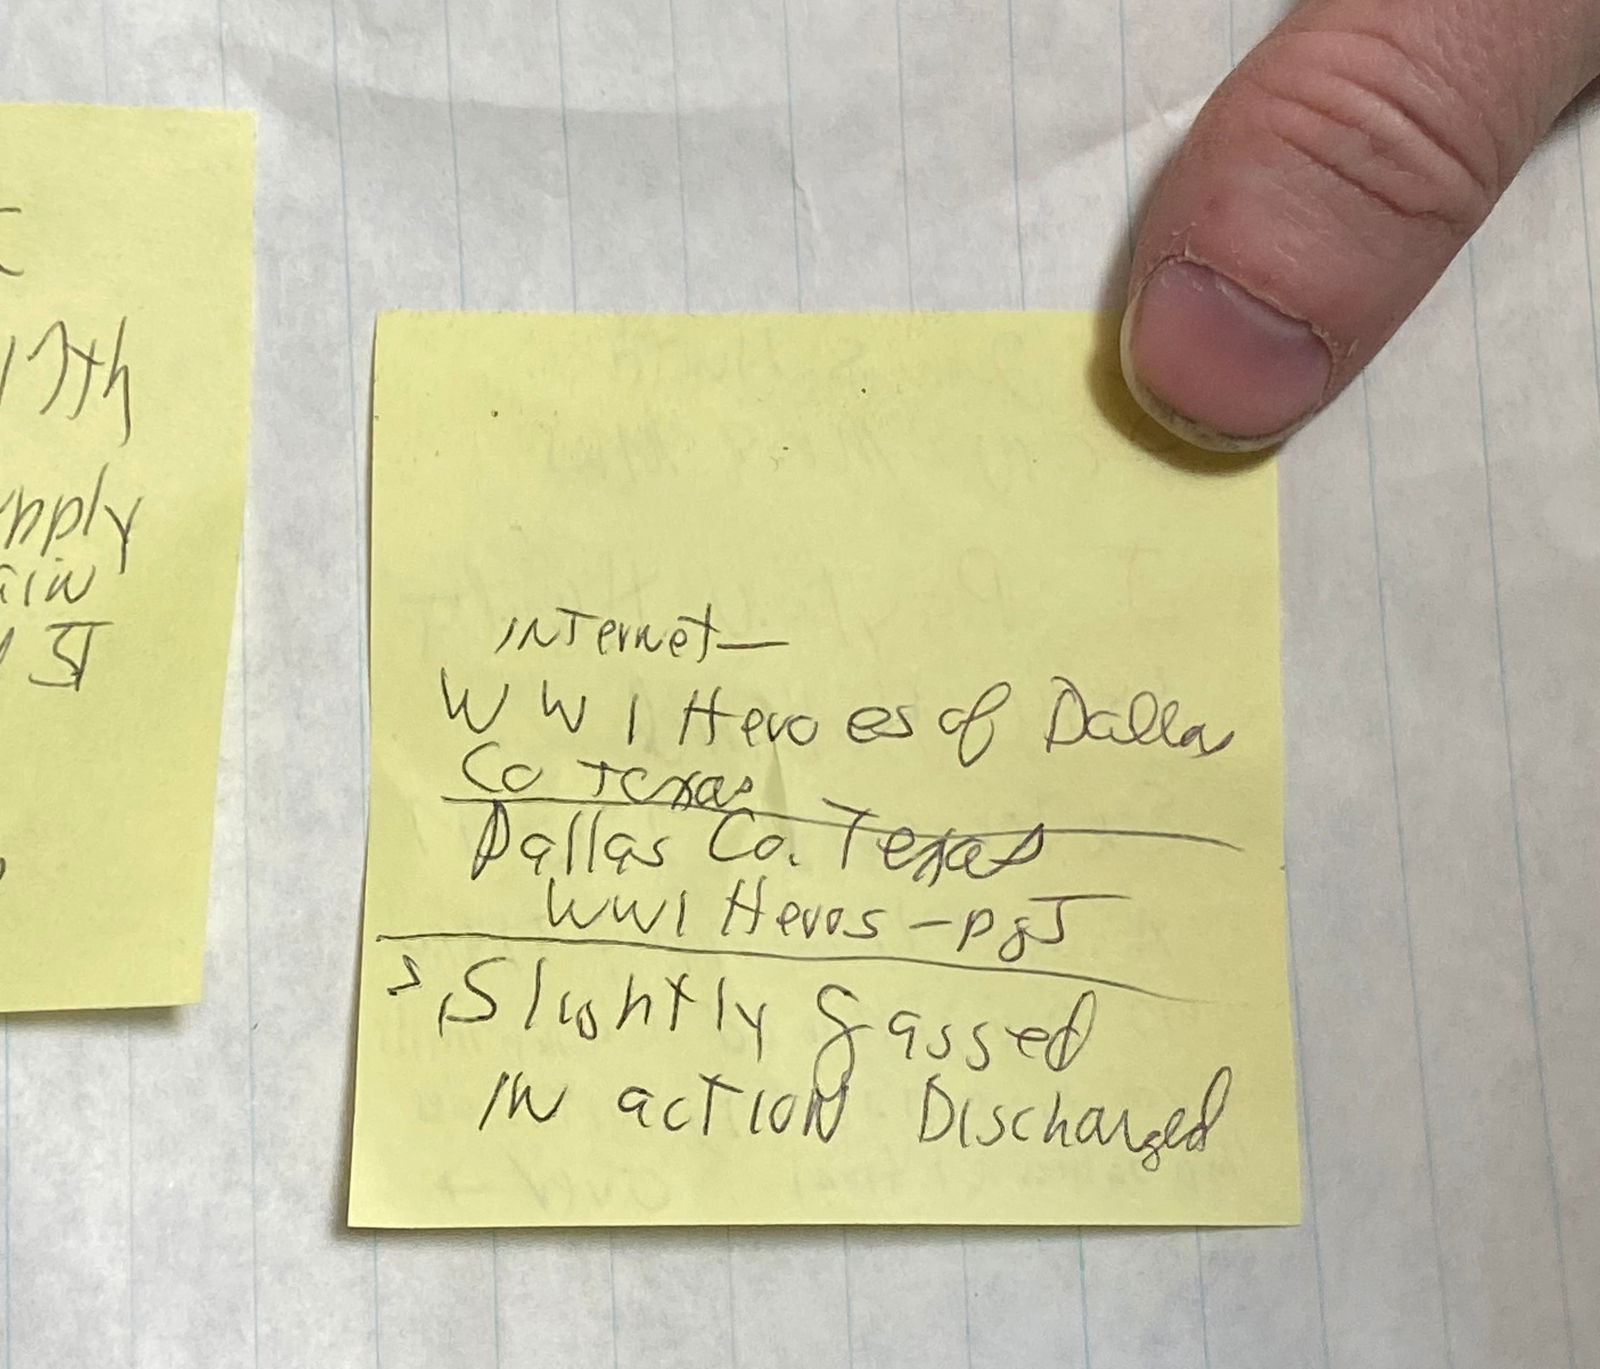 17th
INTernet—
WW1 Heroes of Dallas
Co Texas
Dallas Co. Texas
WW1 Heros - pg J
Slightly gassed
IN acTION Discharged